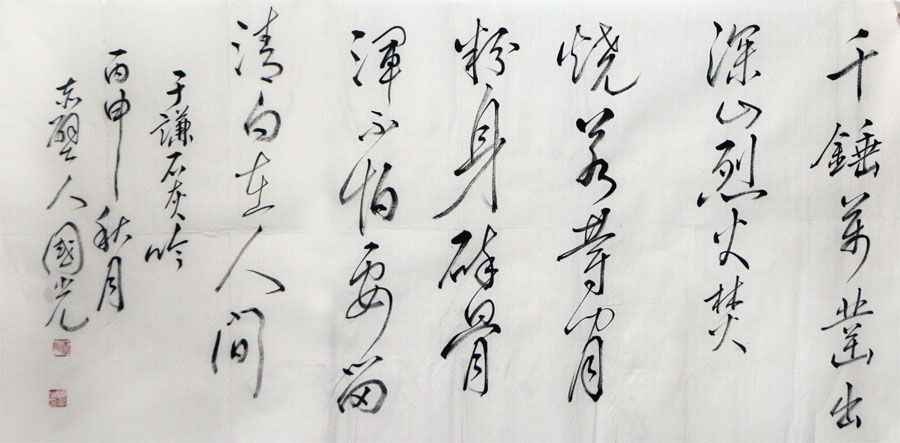 千錘萬凿出
深山烈火焚
烧若等閒
粉身碎骨
渾不怕要留
清白在人間
于謙石灰吟
丙申秋月
赤壁人國光